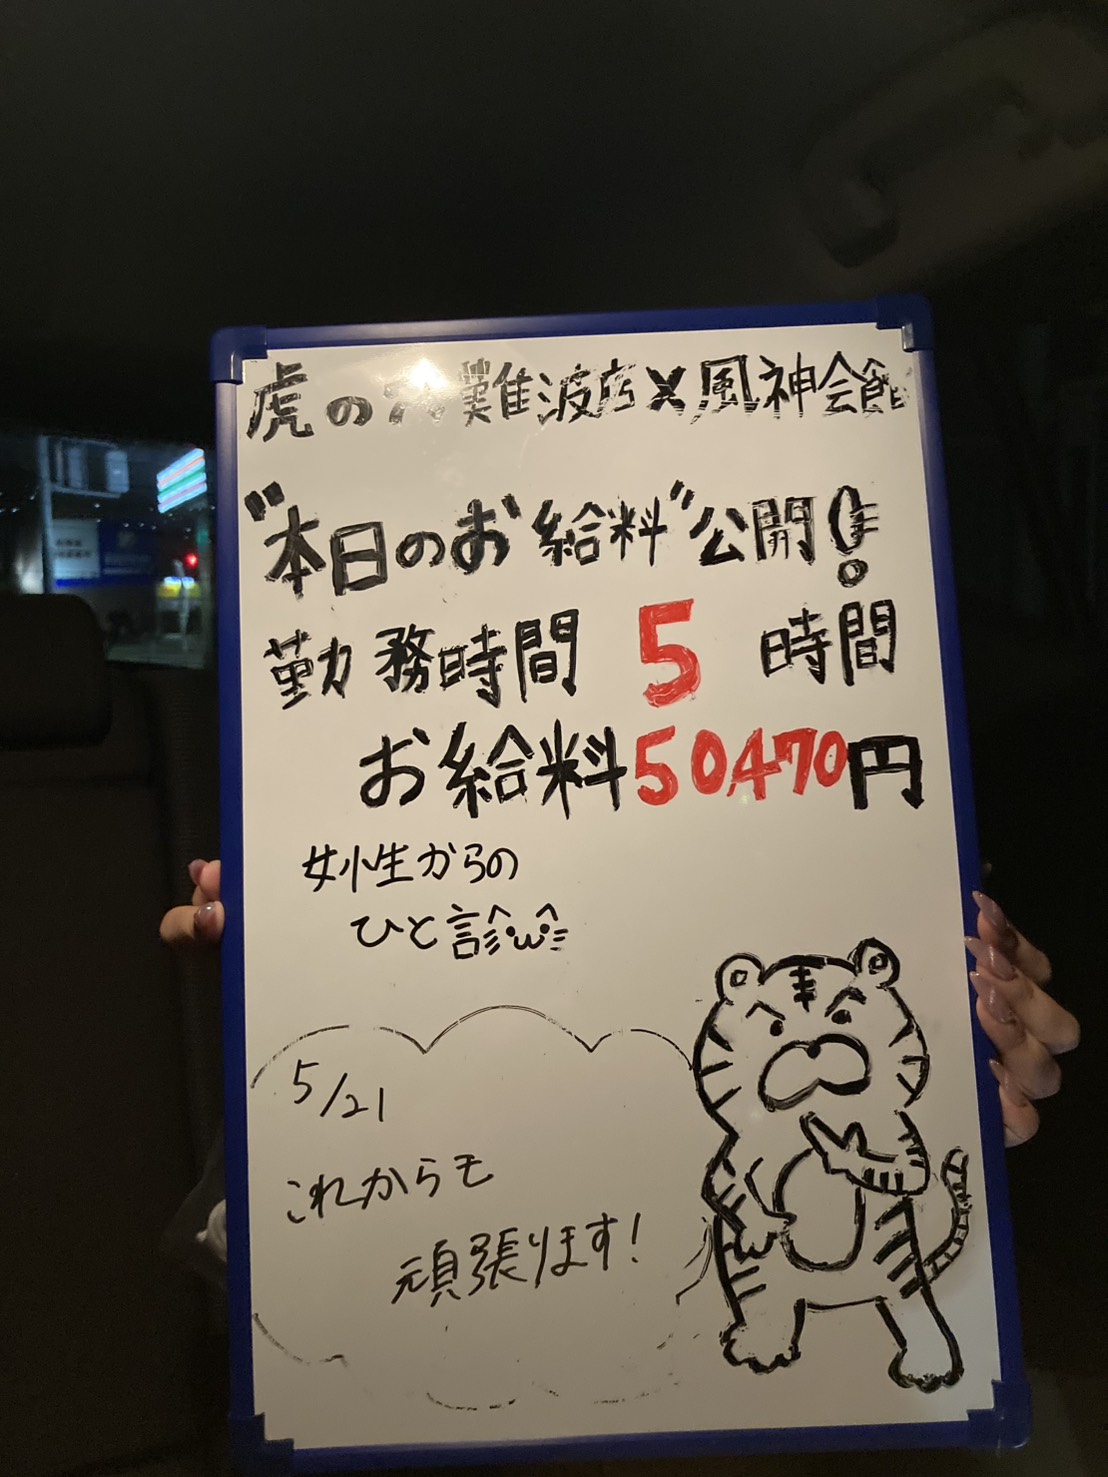 虎の穴難波店×風神会館
"本日のお給料"公開!
勤務時間 5 時間
お給料50,470円
女性からの
ひと言
5/21
これからも
頑張ります!